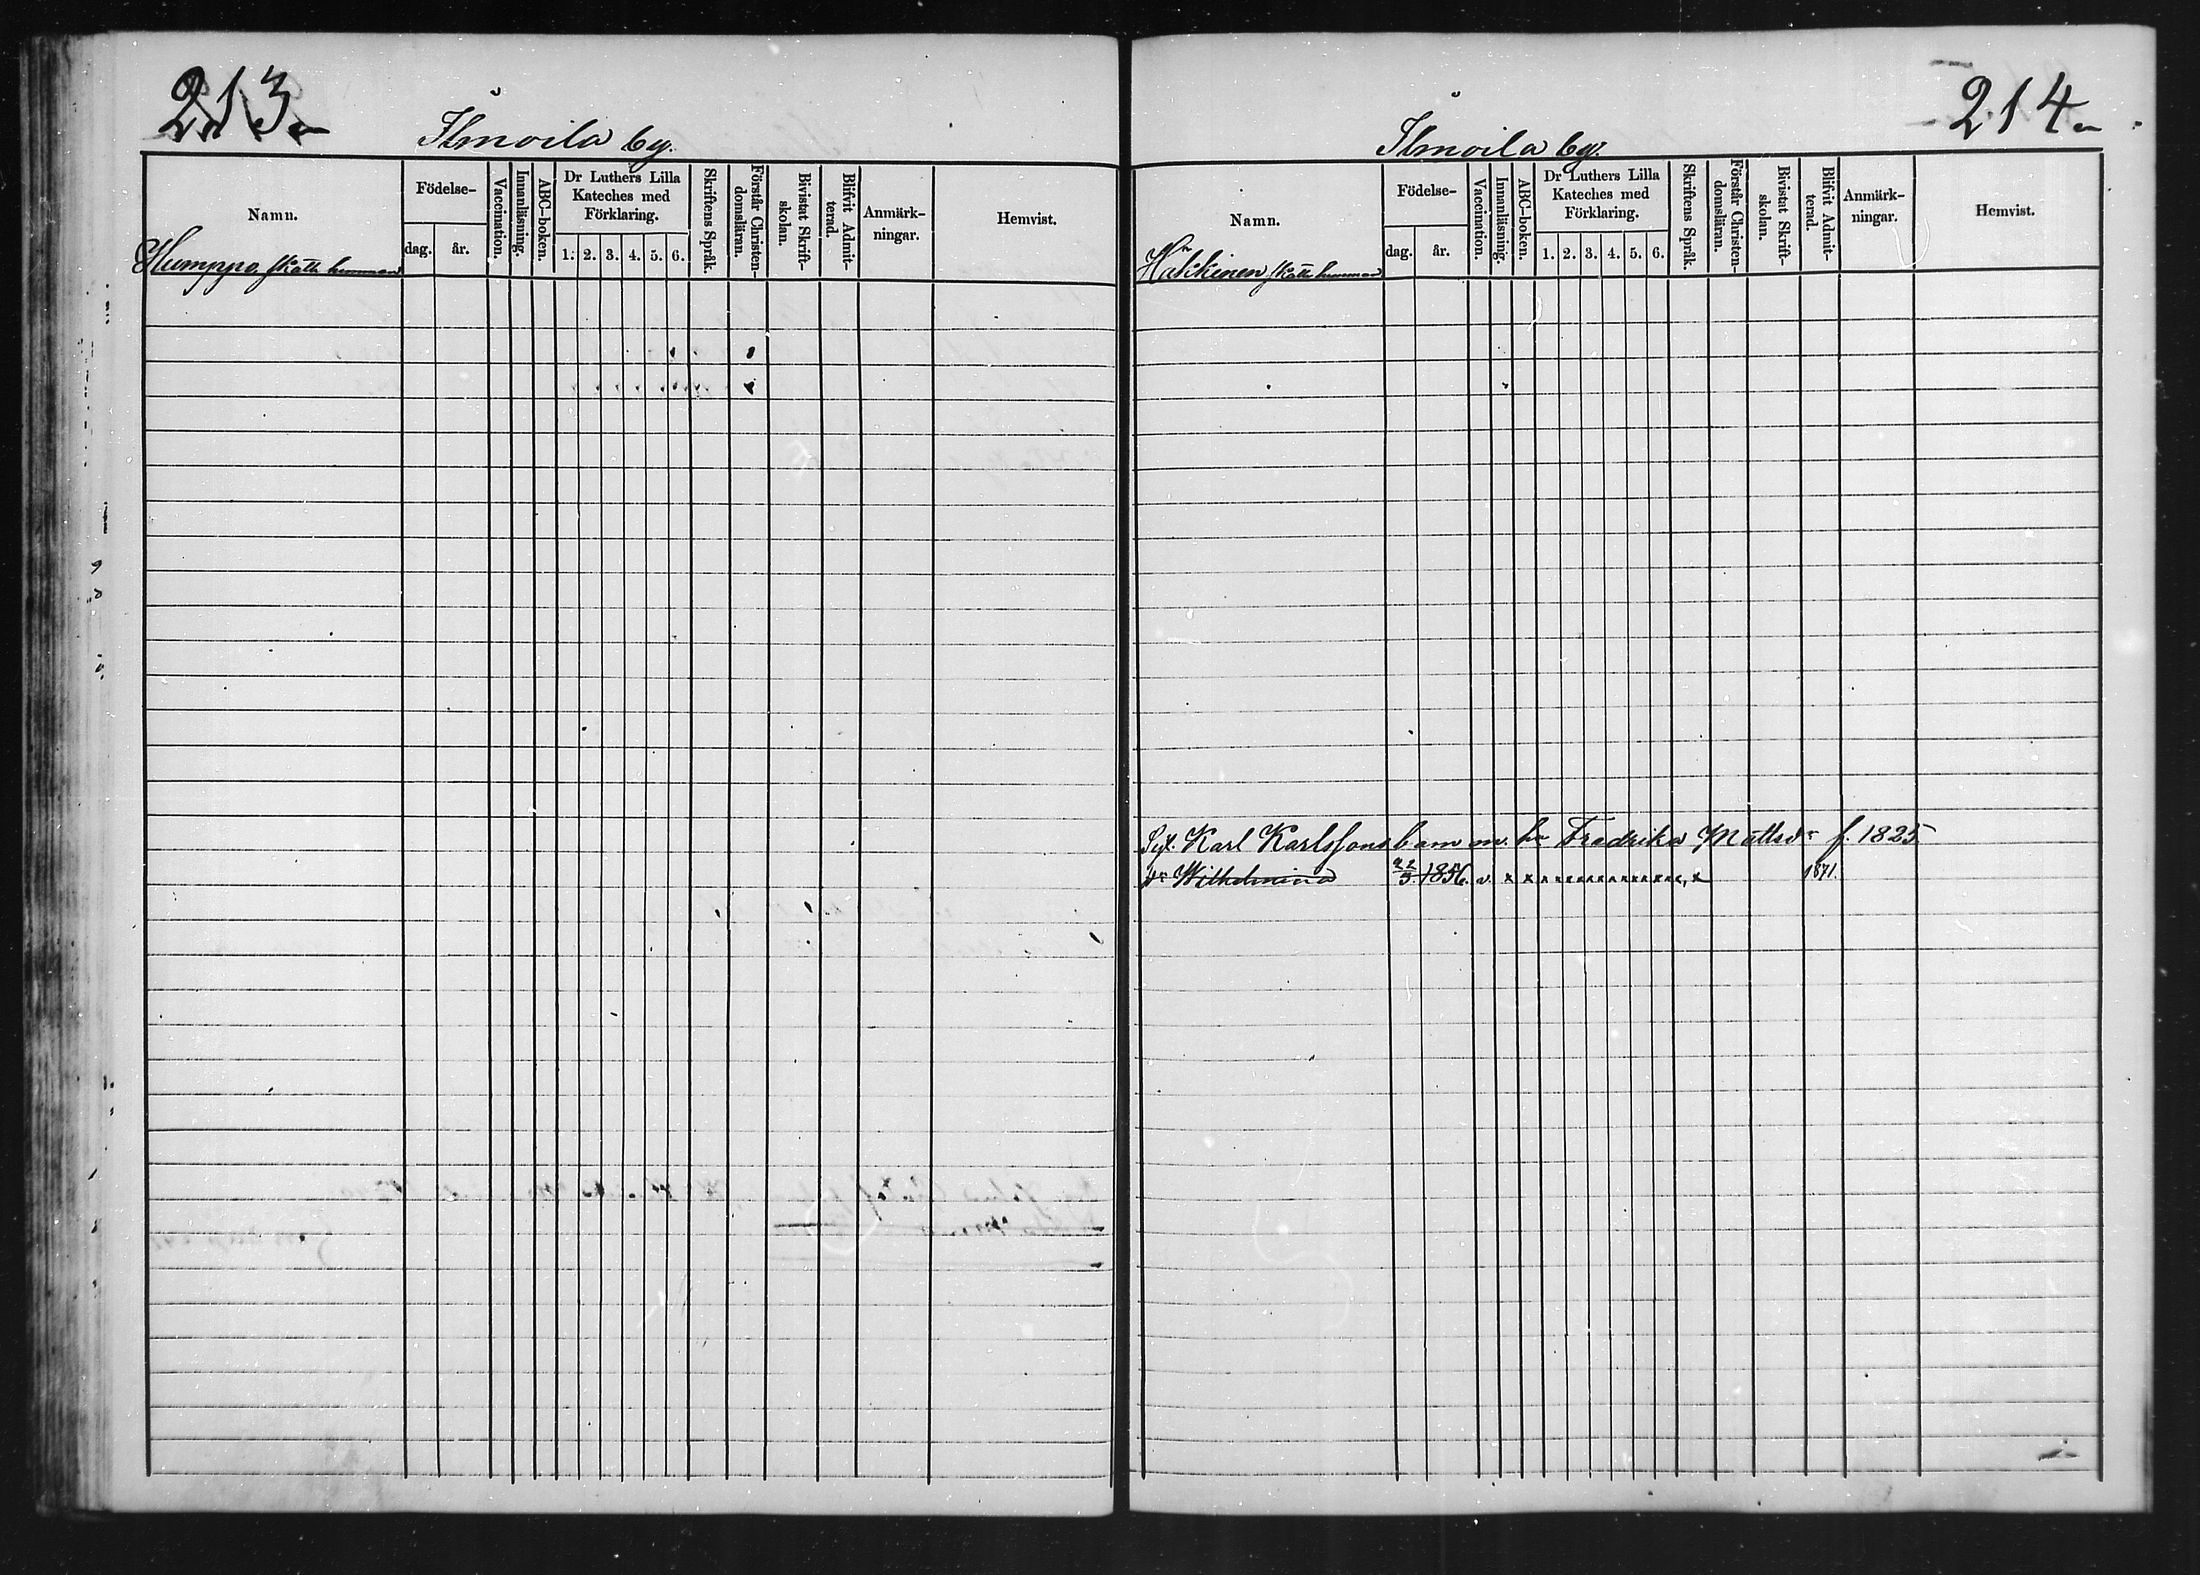 213.
Ilmoila by.
Namn.
Födelse-
dag.
år.
Vaccination.
Innanläsning.
ABC-boken.
Dr Luthers Lilla
Kateches med
Förklaring.
1. 2. 3. 4. 5. 6.
Skriftens Språk.
Förstår Christen-
domsläran.
Bivistat Skrift-
skolan.
Blifvit Admit-
terad.
Anmärk-
ningar.
Hemvist.
Humppo skatte hemman
214.
Ilmoila by.
Namn.
Födelse-
dag.
år.
Vaccination.
Innanläsning.
ABC-boken.
Dr Luthers Lilla
Kateches med
Förklaring.
1. 2. 3. 4. 5. 6.
Skriftens Språk.
Förstår Christen-
domsläran.
Bivistat Skrift-
skolan.
Blifvit Admit-
terad.
Anmärk-
ningar.
Hemvist.
Häkkinen skatte hemman
Karl Karlssons barn m. h. Fredrika Mattsdr f. 1825
dr Wilhelmina 22/5 1856. v. x x x x x x x x x x x x x x, x 1871.